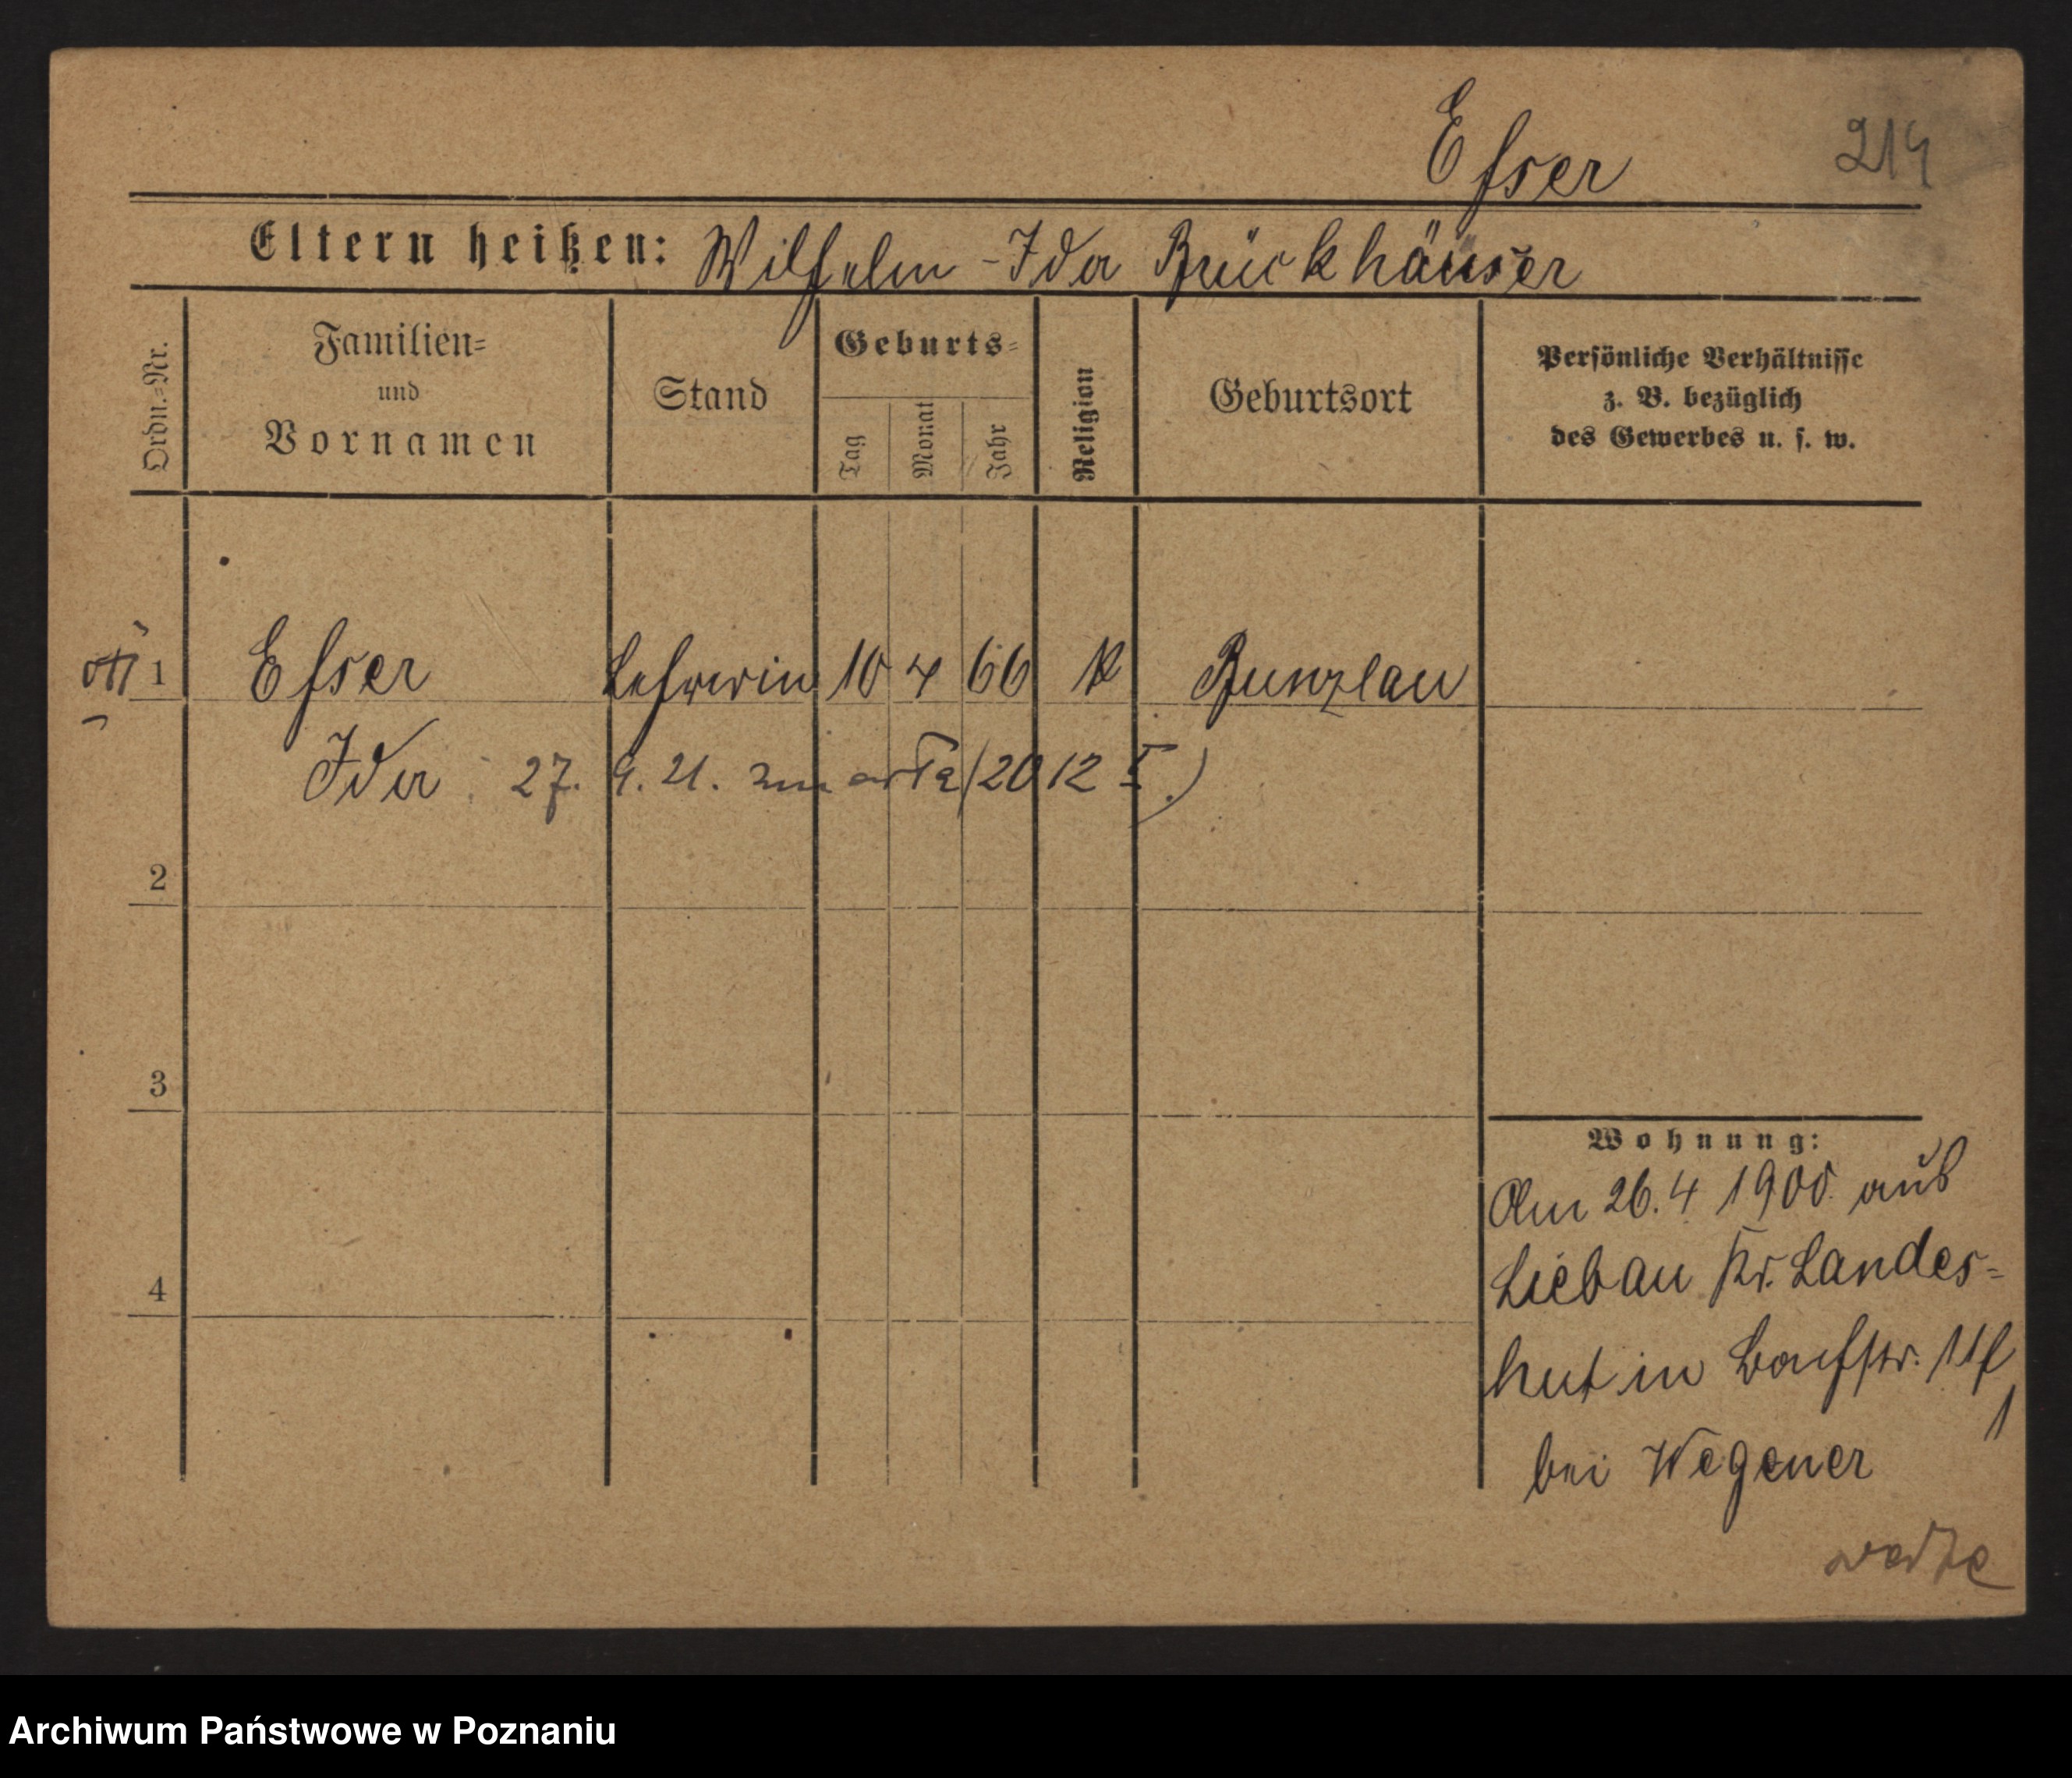 Eſser
214
Eltern heißen: Wilhelm - Ida Brückhäuser
Ordn.=Nr.
Familien=
und
Vornamen
Stand
Geburts=
Tag
Monat
Jahr
Religion
Geburtsort
Persönliche Verhältnisse
z. B. bezüglich
des Gewerbes u. s. w.
1 Eſser Lehrerin 10 4 66 K Bunzlau
Ida 27. 9. 21. zmarła (20 12 I.)
2
3
4
Wohnung:
Am 26.4 1900 aus
Liebau Kr. Landes=
hut in
bei Wegener
Archiwum Państwowe w Poznaniu